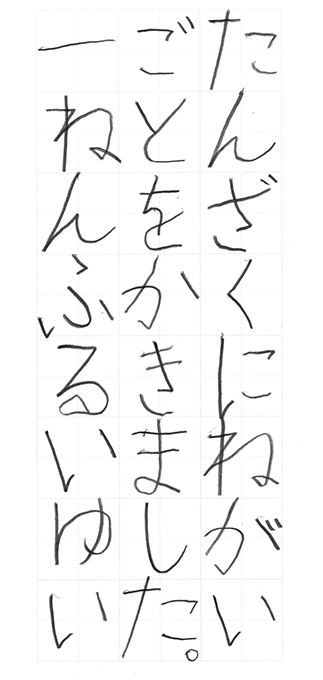 たんざくにねがい
ごとをかきました。
一ねんふるいゆい